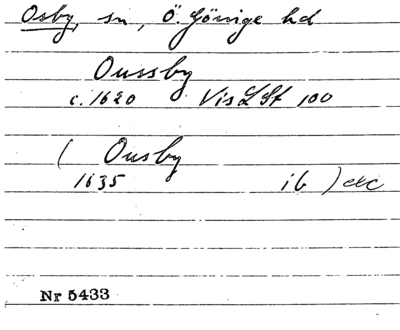 Osby, sn, Ö. Göinge hd
Oussby
c. 1620 Vis LSt 100
( Ousby
1635 ib ) etc
Nr 5433